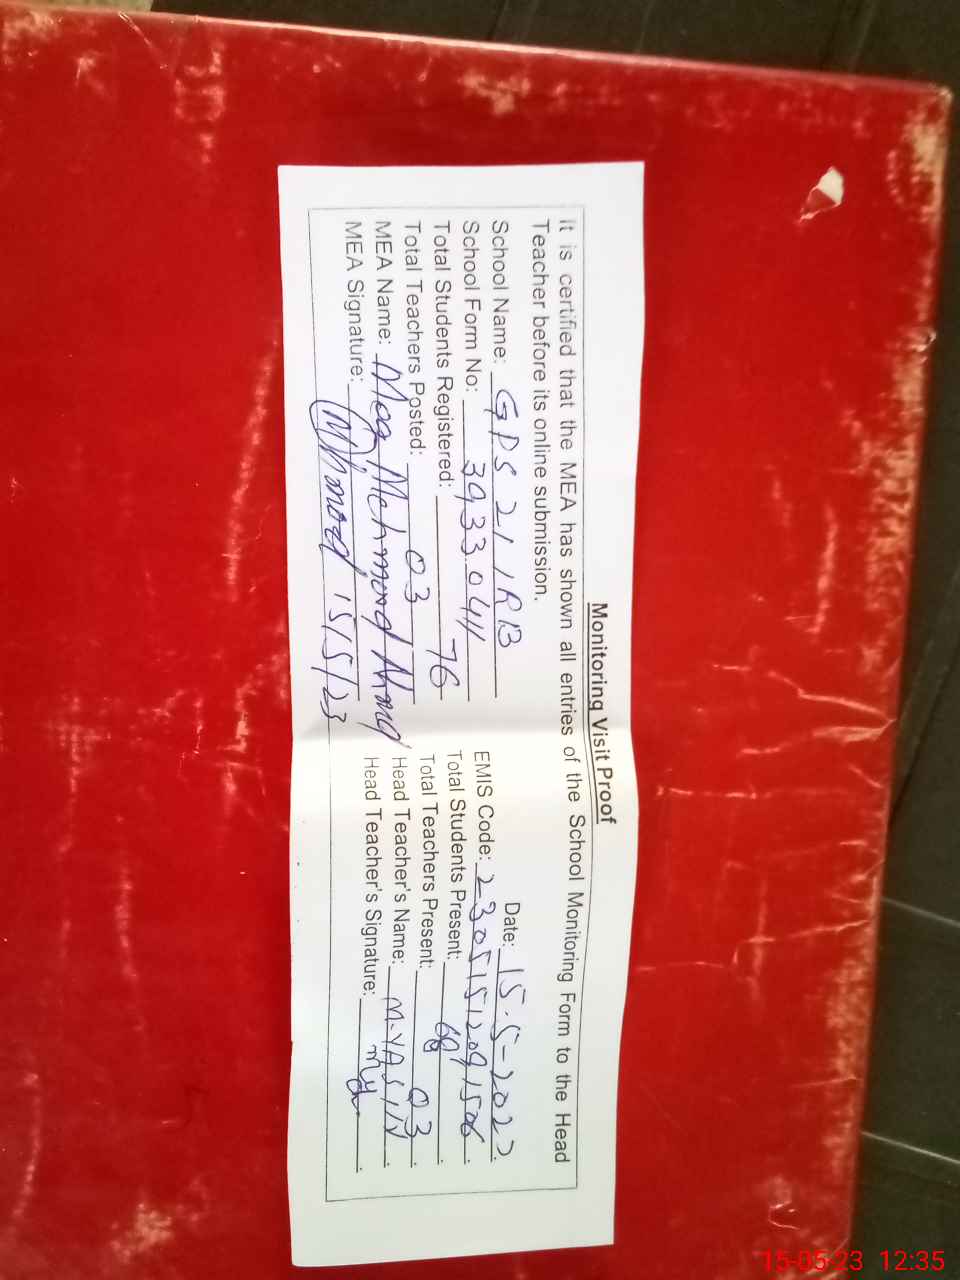 Monitoring Visit Proof
It is certified that the MEA has shown all entries of the School Monitoring Form to the Head
Teacher before its online submission.
Date: 15-5-2023
School Name: GPS 21/RB
EMIS Code: 23051512091506
School Form No: 39330411
Total Students Present: 68
Total Students Registered: 76
Total Teachers Present: 03
Total Teachers Posted: 03
Head Teacher's Name: M-YASIN
MEA Name: Mehmood
Head Teacher's Signature:
MEA Signature: 15/5/23
15-05-23 12:35